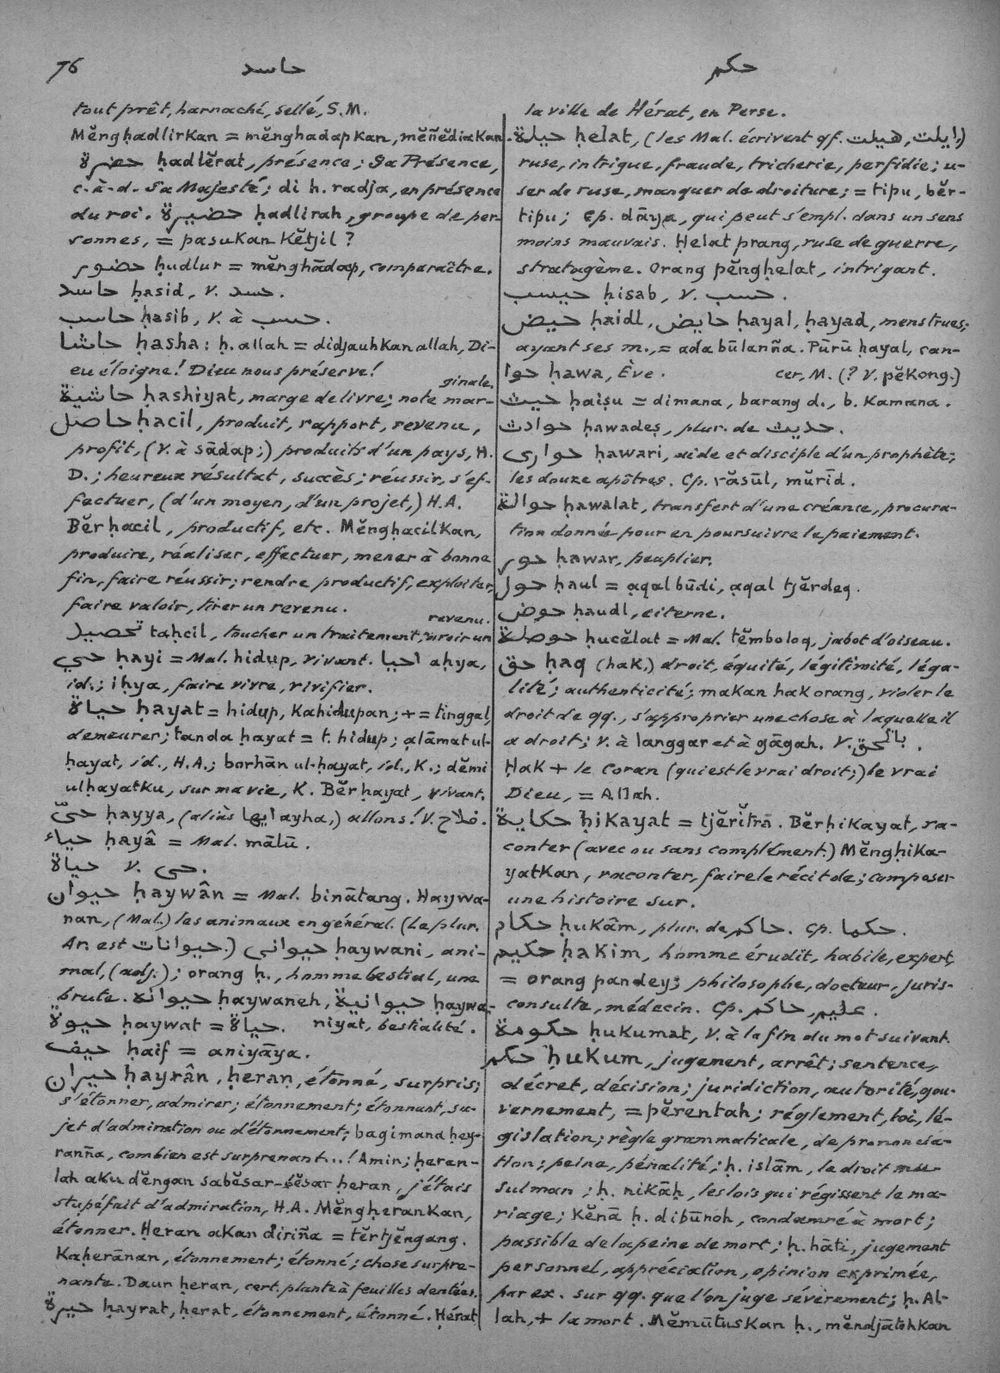 76
حاسد
حكم
tout prêt, harnaché, sellé, S.M.
Mĕngḥadlirkan = mĕnghadapkan, mĕñĕdiakan.
حضرة ḥadlĕrat, présence; Sa Présence,
c.-à-d. Sa Majesté; di ḥ. radja, en présence
du roi. حضيرة ḥadlirah, groupe de per-
sonnes, = pasukan kĕtjil?
حضور ḥudlur = mĕnghādap, comparaître.
حاسد ḥasid, V. حسد.
حاسب ḥasib, V. à حسب.
حاشا ḥasha: ḥ. allah = didjauhkan allah, Di-
eu éloigne! Dieu nous préserve!
ginale.
حاشية ḥashiyat, marge de livre; note mar-
حاصل ḥacil, produit, rapport, revenu,
profit, (V. à sādap;) produits d'un pays, H.
D.; heureux résultat, succès; réussir, s'ef-
fectuer, (d'un moyen, d'un projet,) H.A.
Bĕrḥacil, productif, etc. Mĕngḥacilkan,
produire, réaliser, effectuer, mener à bonne
fin, faire réussir; rendre productif, exploiter,
faire valoir, tirer un revenu.
revenu.
تحصيل taḥcil, toucher un traitement, avoir un
حي ḥayi = Mal. hidup, vivant. احيا aḥya,
id.; iḥya, faire vivre, vivifier.
حياة ḥayat = hidup, kahidupan; + = tinggal,
demeurer; tanda ḥayat = t. hidup; ạlāmat ul-
ḥayat, id., H.A.; borhān ul-ḥayat, id., K.; dĕmi
ulḥayatku, sur ma vie, K. Bĕrḥayat, vivant.
حيّ ḥayya, (aliàs ايها ayha,) allons! V. فلاح.
حياء ḥayâ = Mal. mālū.
حياة V. حي.
حيوان ḥaywân = Mal. binātang. Haywa-
nan, (Mal.) les animaux en général. (Le plur.
Ar. est حيوانات.) حيواني ḥaywani, ani-
mal, (adj.); orang ḥ., homme bestial, une
brute. حيوانه ḥaywaneh, حيوانية ḥaywa-
حيوة ḥaywat = حياة. niyat, bestialité.
حيف ḥaif = aniyāya.
حيران ḥayrân, ḥeran, étonné, surpris;
s'étonner, admirer; étonnement; étonnant, su-
jet d'admiration ou d'étonnement; bagimana ḥey-
ranña, combien est surprenant...! Amin; ḥeran-
lah aku dĕngan sabĕsar-bĕsar ḥeran, j'étais
stupéfait d'admiration, H.A. Mĕngḥerankan,
étonner. Ḥeran akan diriña = tĕrtjĕngang.
Kaḥerānan, étonnement; étonné; chose surpre-
nante. Daun ḥeran, cert. plante à feuilles dentées.
حيرة ḥayrat, ḥerat, étonnement, étonné. Ḥérat
la ville de Hérat, en Perse.
حيلة ḥelat, (les Mal. écrivent qf. هيلت, ايلت)
ruse, intrigue, fraude, tricherie, perfidie; u-
ser de ruse, manquer de droiture; = tipu, bĕr-
tipu; Cp. dāya, qui peut s'empl. dans un sens
moins mauvais. Ḥelat prang, ruse de guerre,
stratagème. Orang pĕngḥelat, intrigant.
حيسب ḥisab, V. حسب.
حيض ḥaidl, حايض ḥayal, ḥayad, menstrues;
ayant ses m., = ada būlanña. Pūrū ḥayal, can-
حوا ḥawa, Ève. cer, M. (? V. pĕkong.)
حيث ḥaiṣu = dimana, barang d., b. kamana.
حوادث ḥawadeṣ, plur. de حديث.
حواري ḥawari, aide et disciple d'un prophète;
les douze apôtres. Cp. răsūl, mŭrīd.
حوالة ḥawalat, transfert d'une créance, procura-
tion donnée pour en poursuivre le paiement.
حور ḥawar, peuplier.
حول ḥaul = ạqal būdi, ạqal tjĕrdeq.
حوض ḥaudl, citerne.
حوصلة ḥucĕlat = Mal. tĕmboloq, jabot d'oiseau.
حق ḥaq (ḥak,) droit, équité, légitimité, léga-
lité; authenticité; makan ḥak orang, violer le
droit de qq., s'approprier une chose à laquelle il
a droit; V. à langgar et à gāgah. V. بالحق.
Ḥak + le Coran (qui est le vrai droit;) le vrai
Dieu, = Allah.
حكاية ḥikayat = tjĕritrā. Bĕrḥikayat, ra-
conter (avec ou sans complément.) Mĕngḥika-
yatkan, raconter, faire le récit de; composer
une histoire sur.
حكام ḥukâm, plur. de حاكم. Cp. حكما.
حكيم ḥakim, homme érudit, habile, expert,
= orang pandey; philosophe, docteur, juris-
consulte, médecin. Cp. عليم, حاكم.
حكومة ḥukumat, V. à la fin du mot suivant.
حكم ḥukum, jugement, arrêt; sentence,
décret, décision; juridiction, autorité, gou-
vernement, = pĕrentah; réglement, loi, lé-
gislation; règle grammaticale, de prononcia-
tion; peine, pénalité; ḥ. islām, le droit mu-
sulman; ḥ. nikāḥ, les lois qui régissent le ma-
riage; kĕnā ḥ. dibūnoh, condamné à mort;
passible de la peine de mort; ḥ. hāti, jugement
personnel, appréciation, opinion exprimée,
par ex. sur qq. que l'on juge sévèrement; ḥ. Al-
lah, + la mort. Mĕmūtuskan ḥ., mĕndjātohkan